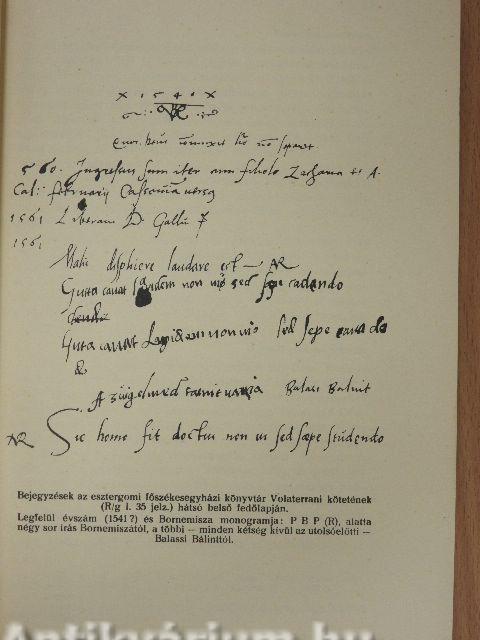 X 1 5 4 1 X
Quos Deus coniunxit homo non separet
560. Ingressus sum iter cum filiolo Zacharia et A.
Cal: februarij Cassoviam versus
1561 Liberam D. Galli
1561
Malis displicere laudare est — AR
Gutta cavat lapidem non vi sed sepe cadendo
Gutta cavat Lapidem non vi sed sepe cado
&
A zügelmed tanit Balasi Balint
AR Sic homo fit doctus non vi sed sæpe studendo
Bejegyzések az esztergomi főszékesegyházi könyvtár Volaterrani kötetének
(R/g I. 35 jelz.) hátsó belső fedőlapján.
Legfelül évszám (1541?) és Bornemisza monogramja: P B P (R), alatta
négy sor írás Bornemiszától, a többi — minden kétség kívül az utolsóelőtti —
Balassi Bálinttól.
Antikvárium.hu